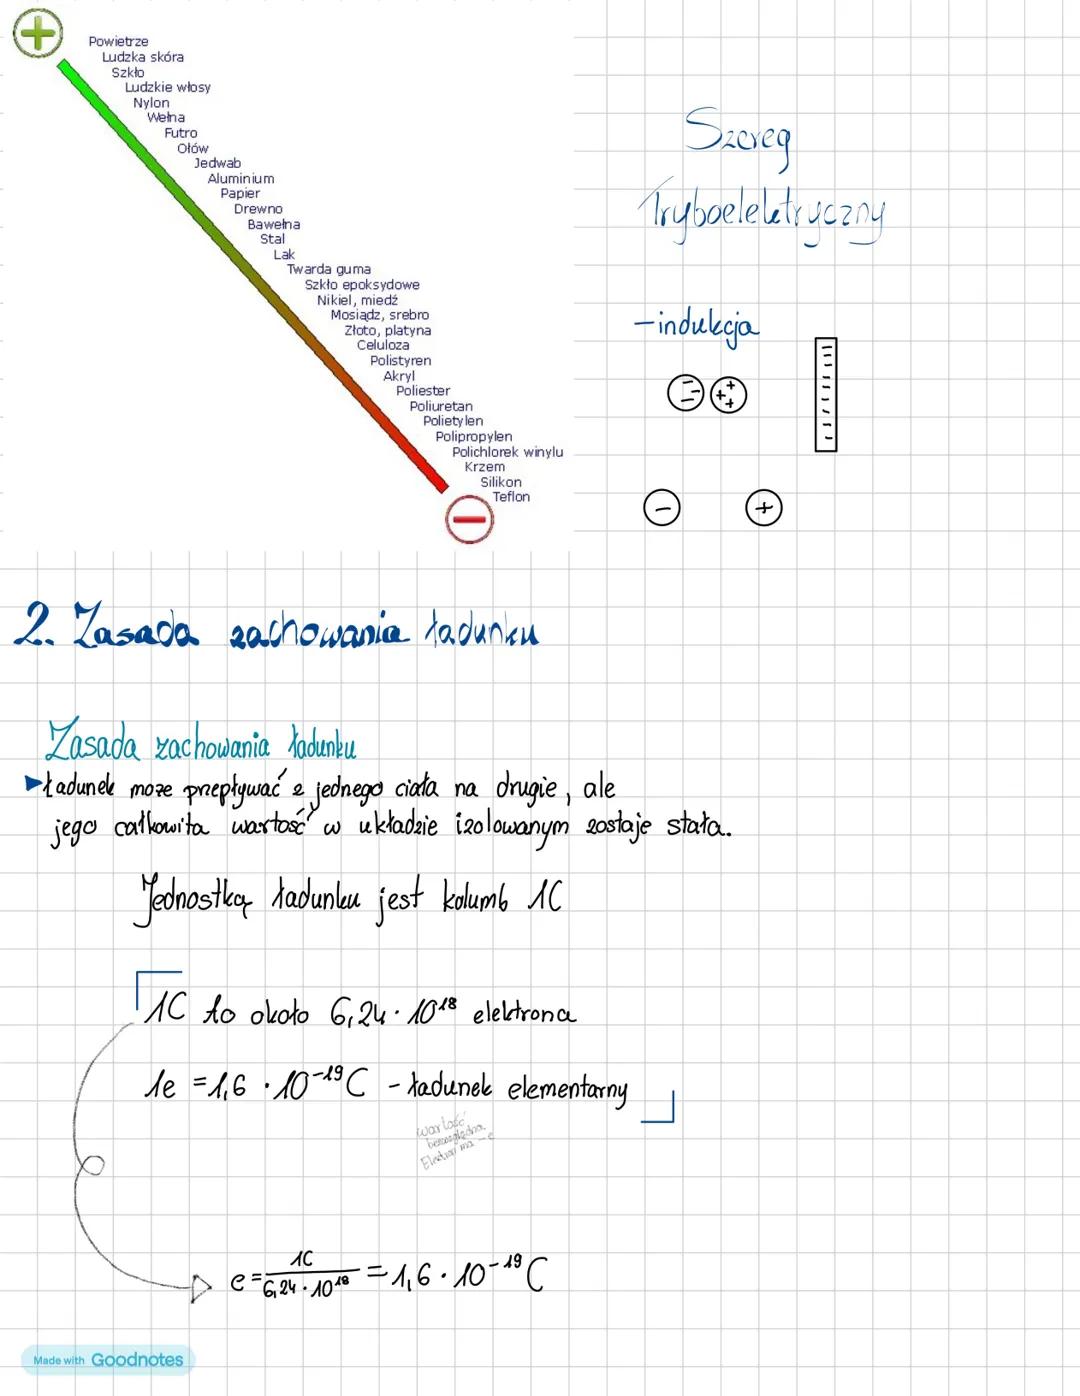 Powietrze
Ludzka skóra
Szkło
Ludzkie włosy
Nylon
Wełna
Futro
Ołów
Jedwab
Aluminium
Papier
Drewno
Bawełna
Stal
Lak
Twarda guma
Szkło epoksydowe
Nikiel, miedź
Mosiądz, srebro
Złoto, platyna
Celuloza
Polistyren
Akryl
Poliester
Poliuretan
Polietylen
Polipropylen
Polichlorek winylu
Krzem
Silikon
Teflon
Szereg
Tryboelektryczny
-indukcja
2. Zasada zachowania ładunku
Zasada zachowania ładunku
ładunek może przepływać z jednego ciała na drugie, ale
jego całkowita wartość w układzie izolowanym zostaje stała.
Jednostką ładunku jest kolumb 1C
1C to około 6,24 · 10¹⁸ elektrona
1e = 1,6 · 10⁻¹⁹ C - ładunek elementarny
wartość
bezwzględna
Elektron ma -e
e = 1C / 6,24 · 10¹⁸ = 1,6 · 10⁻¹⁹ C
Made with Goodnotes